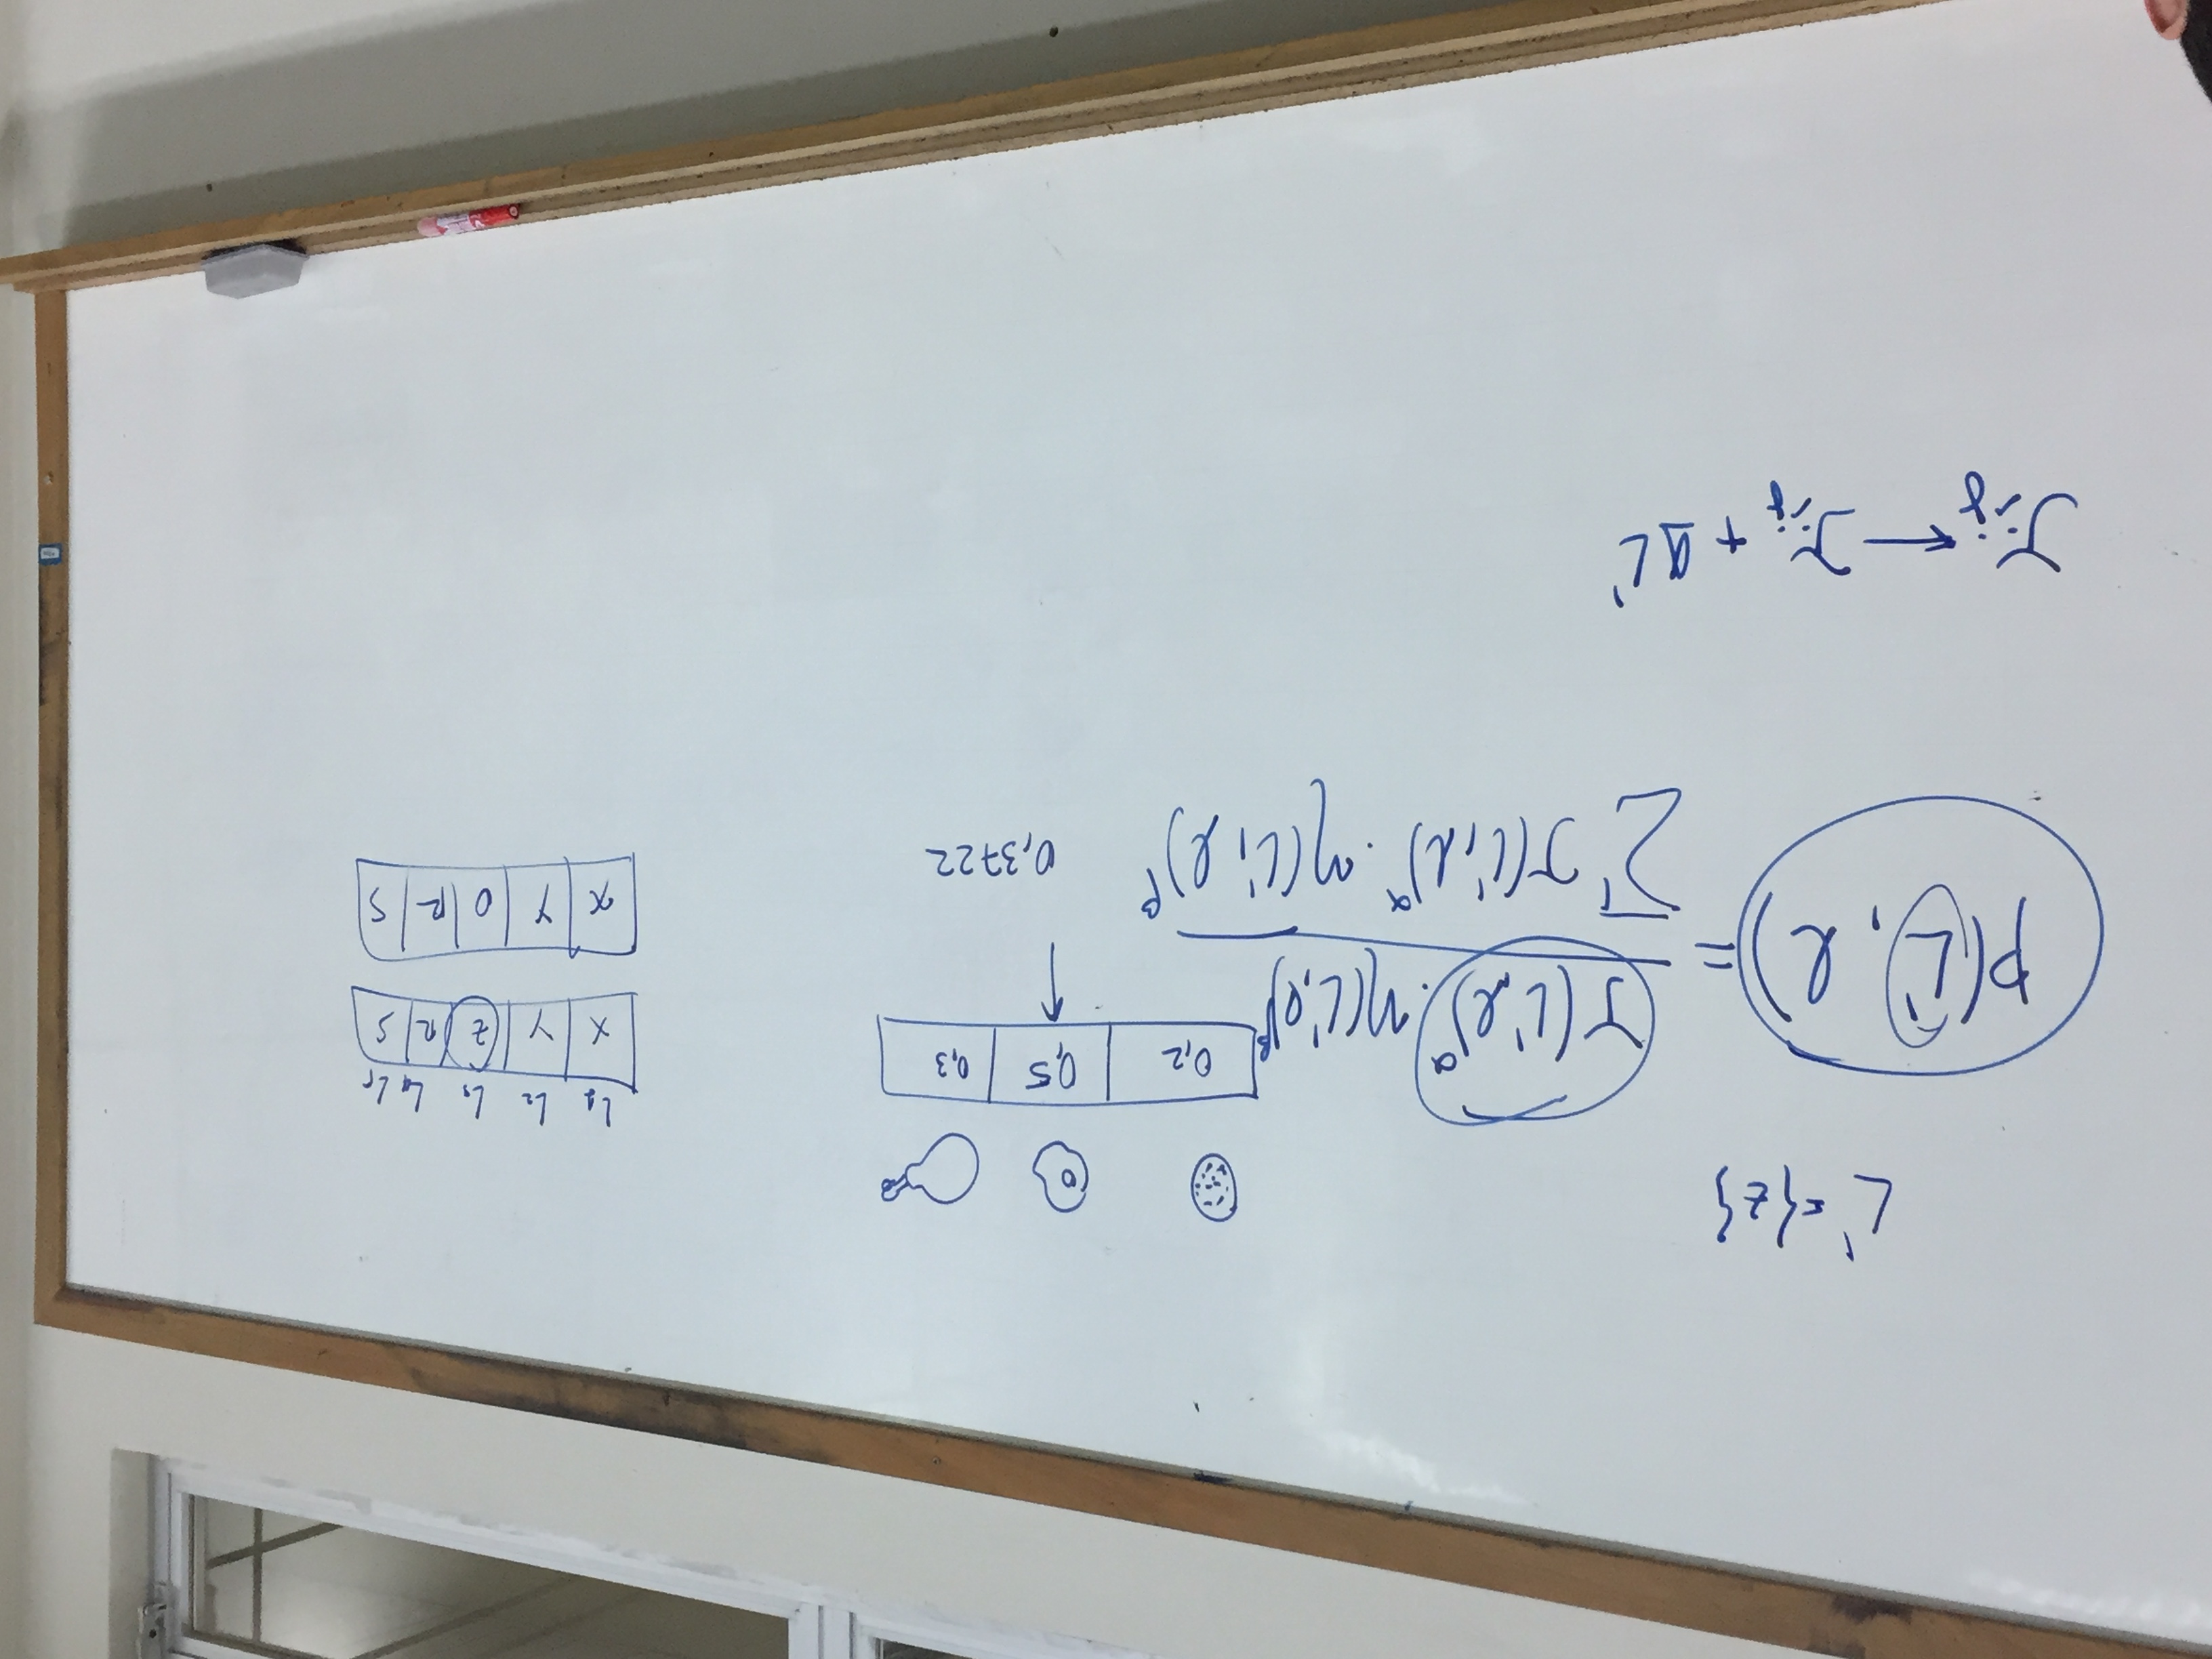 L' = {z}
p(L', l) = τ(L', l)^α · η(L', l)^β
∑ τ(L', l)^α · η(L', l)^β
0,2 0,5 0,3
0,3722
L1 L2 L3 L4 L5
X Y Z R S
X Y O R S
τij ← τij + g L'